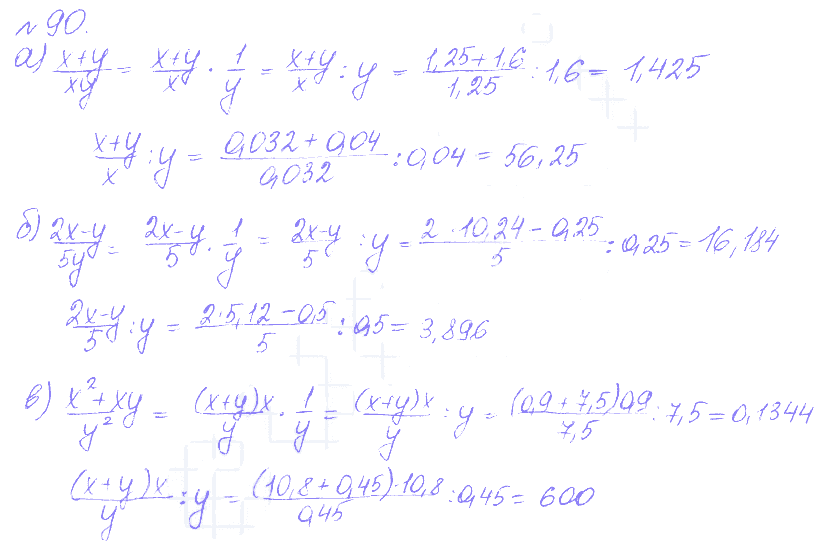 № 90.
а) (x+y)/(xy) = (x+y)/x · 1/y = (x+y)/x : y = (1,25+1,6)/1,25 : 1,6 = 1,425
(x+y)/x : y = (0,032+0,04)/0,032 : 0,04 = 56,25
б) (2x-y)/(5y) = (2x-y)/5 · 1/y = (2x-y)/5 : y = (2·10,24-0,25)/5 : 0,25 = 16,184
(2x-y)/5 : y = (2·5,12-0,5)/5 : 0,5 = 3,896
в) (x²+xy)/y² = ((x+y)x)/y · 1/y = ((x+y)x)/y : y = ((0,9+7,5)0,9)/7,5 : 7,5 = 0,1344
((x+y)x)/y : y = ((10,8+0,45)·10,8)/0,45 : 0,45 = 600